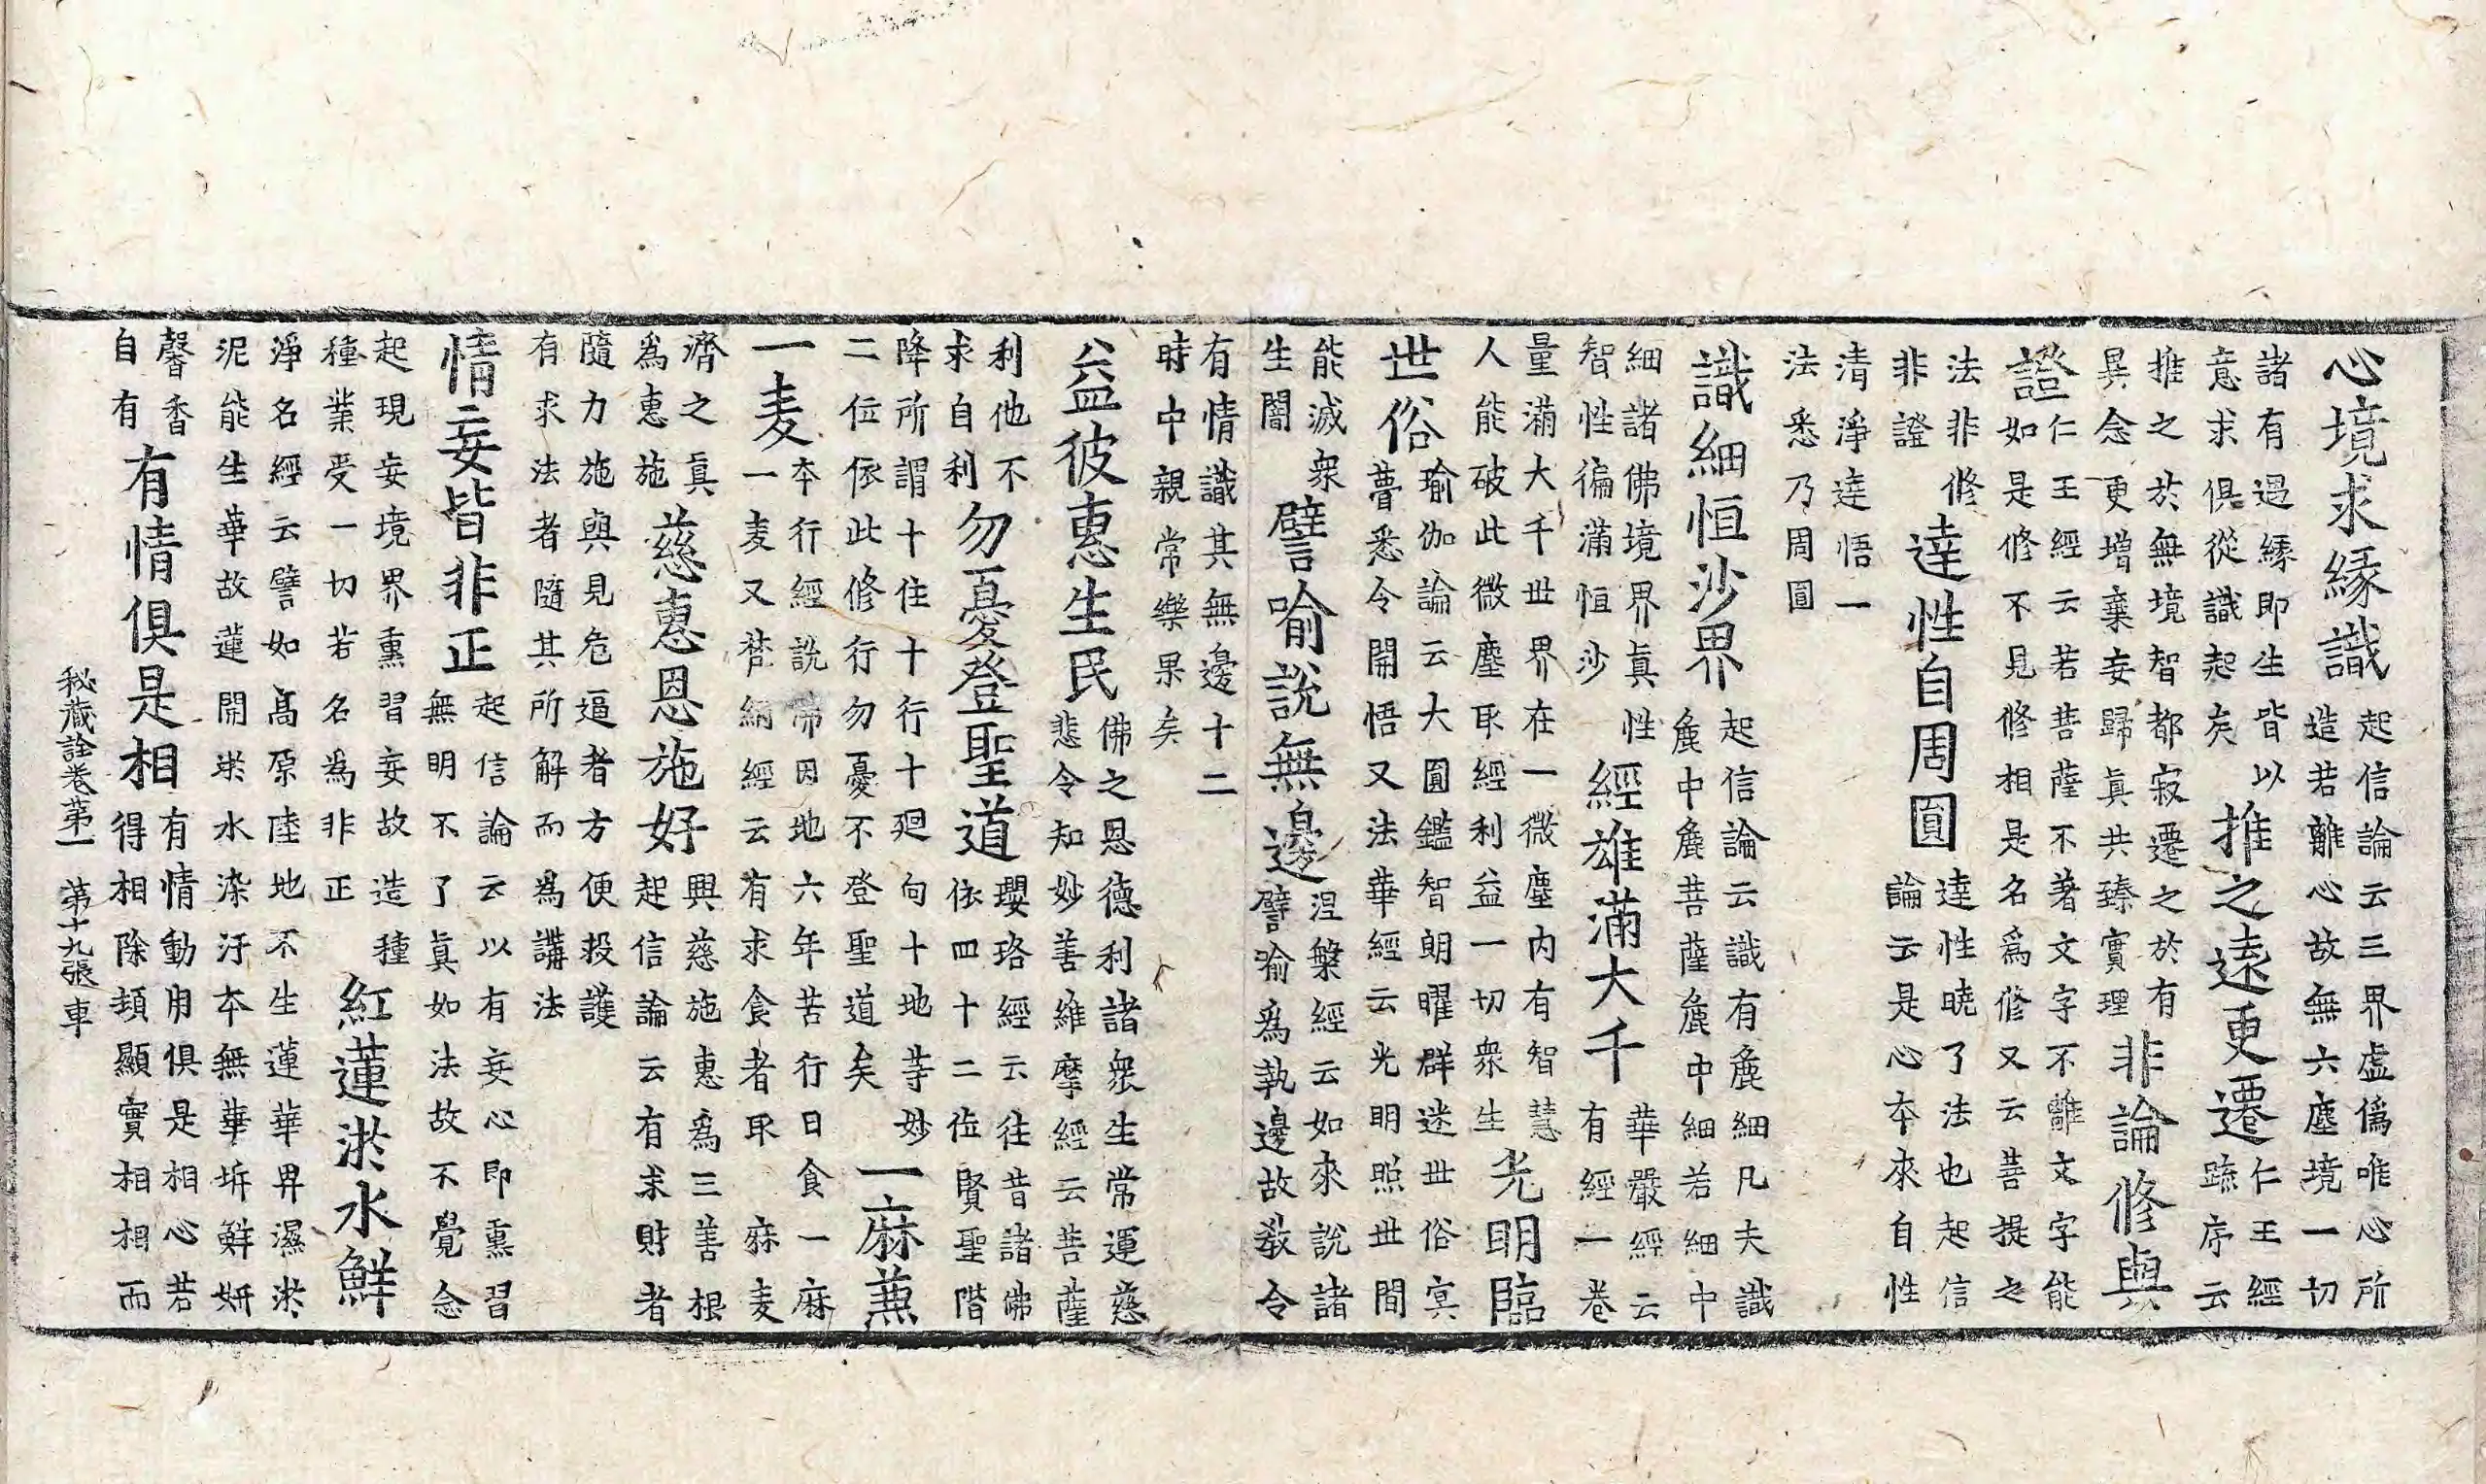 心境求緣識
起信論云三界虛僞唯心所
造若離心故無六塵境一切
諸有遇緣即生皆以
意求俱從識起矣
推之遠更遷
仁王經
疏序云
推之於無境智都寂遷之於有
異念更增棄妄歸眞共臻實理
非論修與
證
仁王經云若菩薩不著文字不離文字能
如是修不見修相是名爲修又云菩提之
法非修
非證
達性自周圓
達性曉了法也起信
論云是心本來自性
清淨達悟一
法悉乃周圓
識細恒沙界
起信論云識有麁細凡夫識
麁中麁菩薩麁中細若細中
細諸佛境界眞性
智性徧滿恒沙
經雄滿大千
華嚴經云
有經一卷
量滿大千世界在一微塵内有智慧
人能破此微塵取經利益一切衆生
光明臨
世俗
瑜伽論云大圓鑑智朗曜群迷世俗冥
瞢悉令開悟又法華經云光明照世間
能滅衆
生闇
譬喻說無邊
涅槃經云如來說諸
譬喻爲執邊故敎令
有情識其無邊十二
時中親常樂果矣
益彼惠生民
佛之恩德利諸衆生常運慈
悲令知妙善維摩經云菩薩
利他不
求自利
勿憂登聖道
瓔珞經云往昔諸佛
依四十二位賢聖階
降所謂十住十行十廻向十地等妙
二位依此修行勿憂不登聖道矣
一麻兼
一麦
本行經說帝因地六年苦行日食一麻
一麦又梵網經云有求食者取麻麦
濟之眞
爲惠施
慈惠恩施好
興慈施惠爲三善根
起信論云有求財者
隨力施與見危逼者方便投護
有求法者隨其所解而爲講法
情妄皆非正
起信論云以有妄心即熏習
無明不了眞如法故不覺念
起現妄境界熏習妄故造種
種業受一切若名爲非正
紅蓮淤水鮮
淨名經云譬如高原陸地不生蓮華卑濕淤
泥能生華故蓮開淤水染汙本無華坼鮮妍
馨香
自有
有情俱是相
有情動用俱是相心若
得相除頓顯實相相而
秘藏詮卷第一 第十九張 車